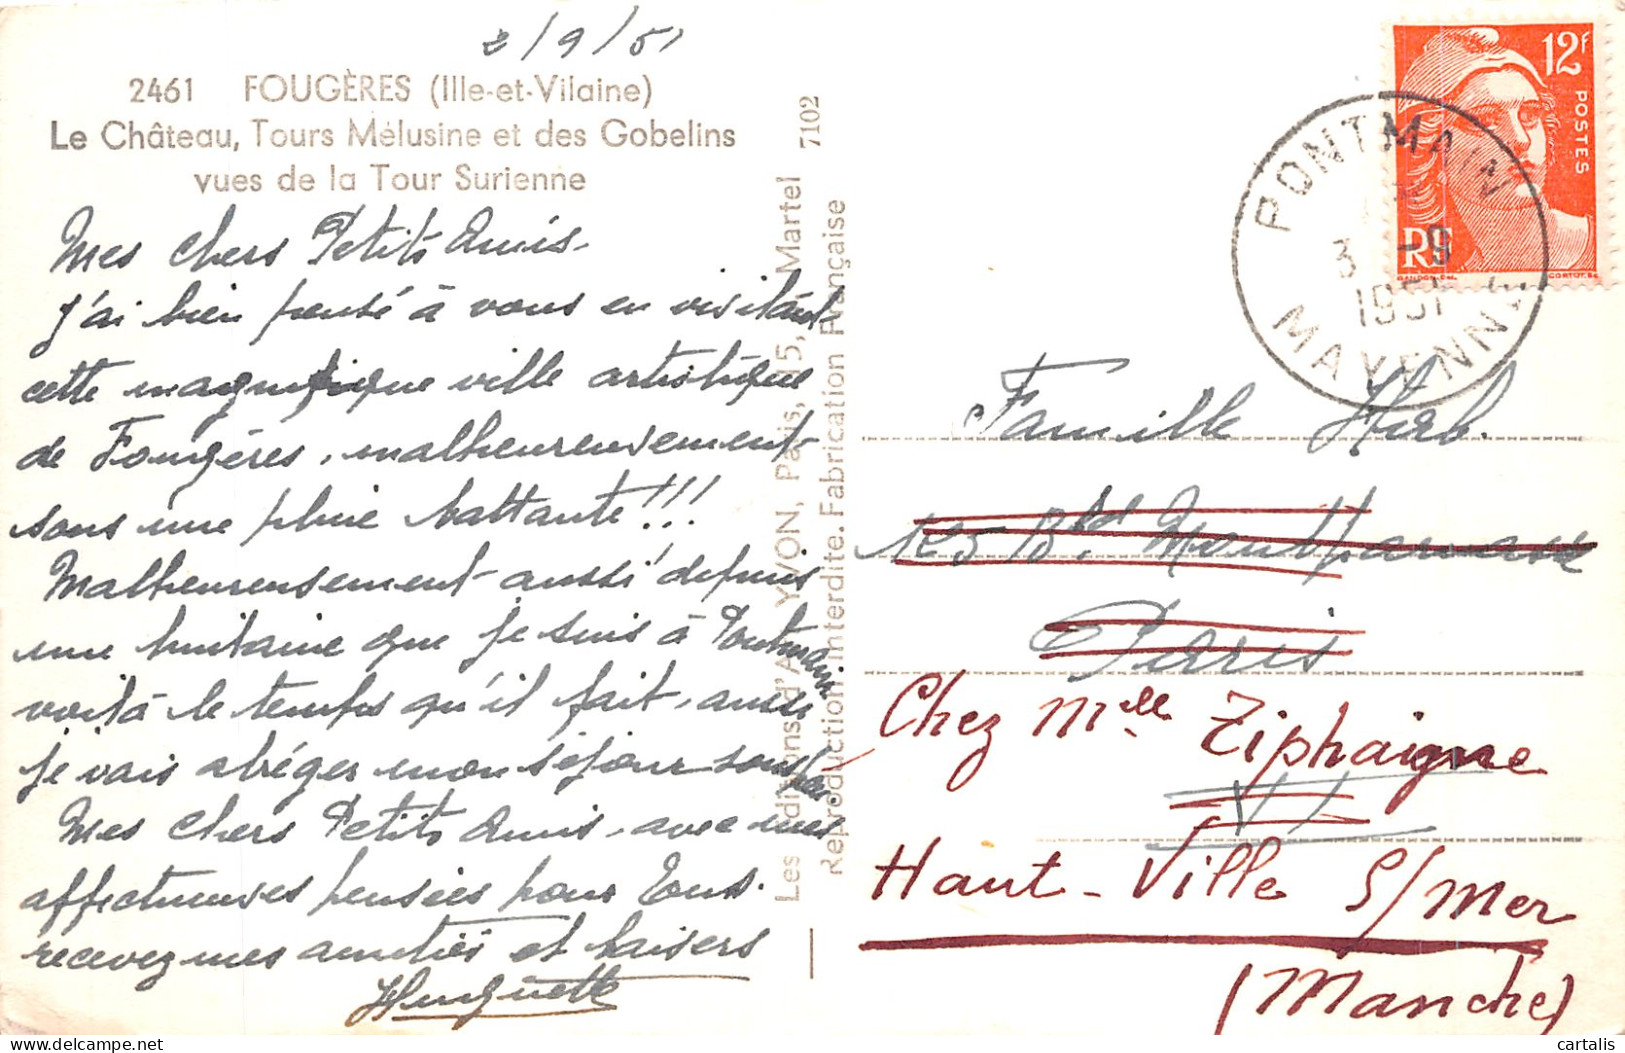 2/9/51
2461 FOUGÈRES (Ille-et-Vilaine)
Le Château, Tours Mélusine et des Gobelins
vues de la Tour Surienne
Mes chers Petits Amis -
J'ai bien pensé à vous en visitant
cette magnifique ville artistique
de Fougères, malheureusement
sous une pluie battante !!!
Malheureusement aussi depuis
une huitaine que je suis à Pontmain
voilà le temps qu'il fait, aussi
je vais abréger mon séjour
Mes chers Petits Amis, avec mes
affectueuses pensées pour tous.
recevez mes amitiés et baisers
Huguette
Les Éditions d'Art YVON, Pais, 15, Martel 7102
Reproduction Interdite. Fabrication Française
12F
POSTES
RF
GANDON DEL.
CORTOT SC.
PONTMAIN
3 -9
1951
MAYENNE
Famille Herb.
125 Bd Montparnasse
Paris
VI
Chez Mlle Ziphaigne
Haut-Ville S/Mer
(Manche)
cartalis